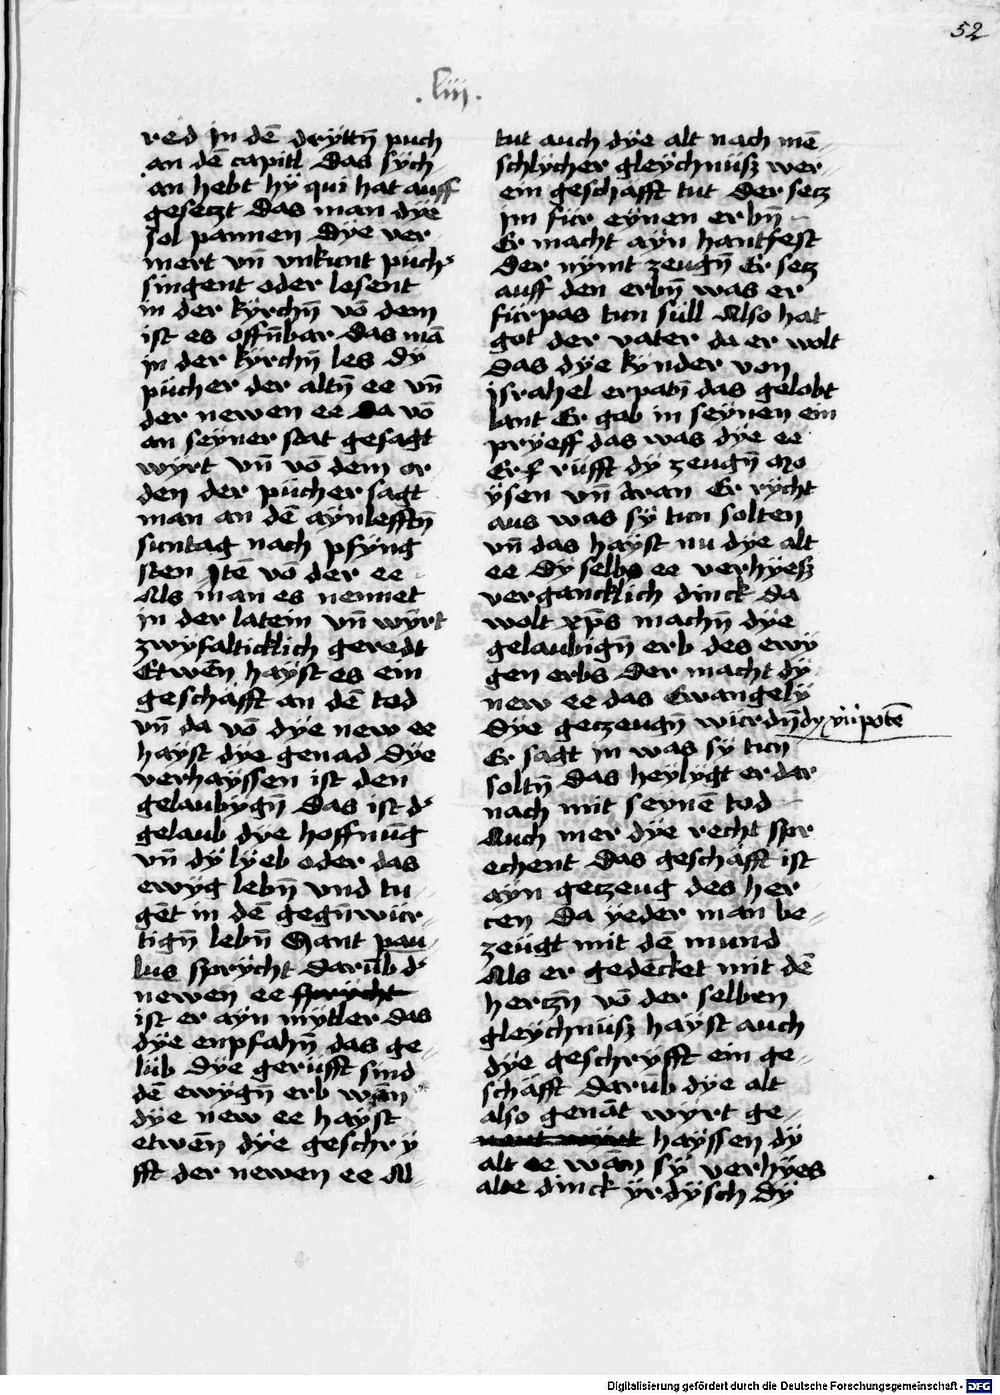 52
.liij.
red in dē dryttn̄ puch
an dē capitl Das sÿch
an hebt hÿ qui hat auff
gesetzt Das man dÿe
sol pannen Dÿe ver
mert vn̄ vnkunt pücher
singent oder lesent
in der kÿrchn̄ vō dem
ist es offn̄bar das mā
in der kÿrchn̄ les dÿ
pücher der altn̄ ee vn̄
der newen ee Da vō
an seyner stat gesagt
wÿrt vn̄ vō dem or
den der pücher sagt
man an dē aÿnlefftn̄
suntag nach pfÿng
sten Jtē vō der ee
Als man es nennet
in der latein vn̄ wÿrt
zwÿfalticklich geredt
Etwēn haÿst es ein
geschäfft an dē tod
vn̄ da vō dÿe new ee
haÿst dÿe genad Dÿe
verhaÿssen ist den
gelaubÿgn̄ Das ist der
gelaub dÿe hoffnūg
vn̄ dÿ lÿeb oder das
ewÿg lebn̄ vnd tu
gēt in dē gegn̄wür
tign̄ lebn̄ Sant pau
lus sprÿcht Darūb der
newen ee sprÿcht
ist er aÿn mÿtler das
dÿe enpfahn̄ das ge
lüb Dÿe gerüfft sind
dē ewÿgn̄ erb wān
dÿe new ee haÿst
etwēn dÿe geschrÿ
fft der newen ee Al
tut auch dÿe alt nach mē
schlÿcher gleÿchnüsz wer
ein geschäfft tut Der setz
im für eÿnen erbn̄
Er macht aÿn hantfest
Der nÿmt zeugn̄ Er setz
auff den erbn̄ was er
fürpas tun süll Also hat
got der vater da er wolt
Das dÿe kÿnder von
israhel erpatn̄ das gelobt
lant Er gab in seÿnen ein
prÿeff das was dÿe ee
Er rüfft dÿ zeugn̄ Mo
ÿsen vn̄ Aran Er rÿcht
aus was sÿ tun solten
vn̄ das haÿst nu dÿe alt
ee Dÿ selbs ee verhÿesz
vergancklich dinck Da
wolt xp̄s machn̄ dÿe
gelaubign̄ erb des ewÿ
gen erbs Der macht dÿ
new ee das Ewangelÿ
Dÿe getzeugn̄ wurdn̄ dy xij potē
Er sagt in was sÿ tun
soltn̄ Das heÿlÿgt er dar
nach mit seynē tod
Auch mer dÿe recht spr
echent Das geschäfft ist
aÿn getzeug des her
cen Da ÿeder man be
zeügt mit dē mund
Als er gedēcket mit dē
hertzn̄ vō der selben
gleÿchnüsz haÿst auch
dÿe geschrÿfft ein ge
schäfft Darūb dÿe alt
also genāt wÿrt ge
haÿssen dÿ
alt ee wān sÿ verhÿes
alte dinck ÿrdÿsch Dÿ
Digitalisierung gefördert durch die Deutsche Forschungsgemeinschaft - DFG